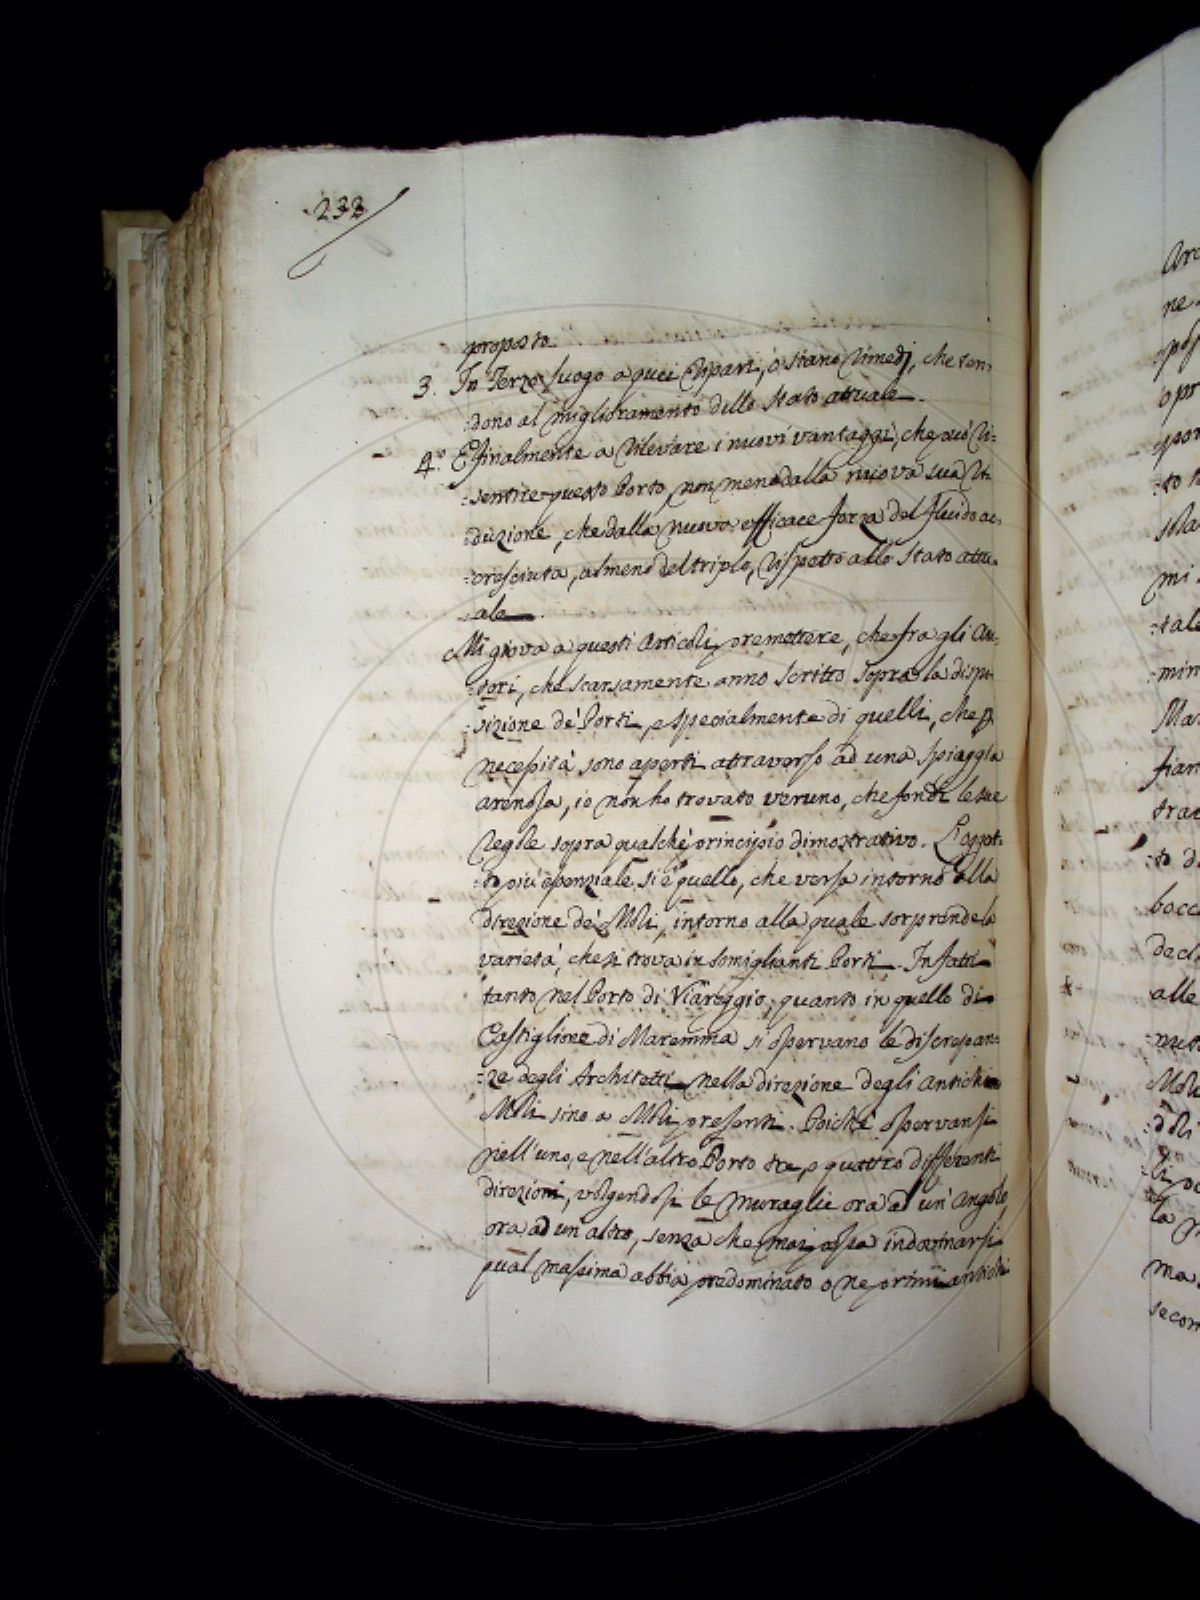 232
proposto.
3. In Terzo luogo a quei Ripari, o stano Rimedj, che ten:
:dono al miglioramento dello Stato attuale.
4.º E finalmente a rilevare i nuovi vantaggi, che può ri:
:sentire questo Porto, non meno dalla nuova sua Ri:
:duzione, che dalla nuova efficace forza del fluido ac:
:cresciuta, almeno del triplo, rispetto allo Stato attu:
:ale.
Mi giova a questi Articoli premettere, che fra gli Au:
:tori, che scarsamente anno scritto sopra la dispo:
:sizione de' Porti, e specialmente di quelli, che p
necessità sono aperti attraverso ad una spiaggia
arenosa, io non ho trovato veruno, che fondi le sue
regole sopra qualche principio dimostrativo. L'ogget:
:to più essenziale si è quello, che versa intorno alla
direzione de' Moli, intorno alla quale sorprende la
varietà, che si trova in somiglianti Porti. Infatti
tanto nel Porto di Viareggio, quanto in quello di
Castiglione di Maremma si osservano le discrepan:
:ze degli Architetti nella direzione degli antichi
Moli sino a Moli presenti. Poichè osservansi
nell'uno, e nell'altro Porto tre, o quattro differenti
direzioni, volgendosi le muraglie ora ad un' angolo,
ora ad un altro, senza che mai possa indovinarsi
qual massima abbia predominato o ne primi antichi
Arc
ne
opr
spor
:to
mi
:tale
:min
Mar
fian
trac
:to d
bocc
decl
alle
:nut
Mol
la
ma
secon